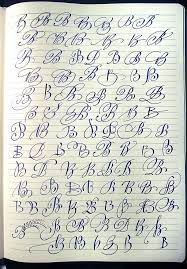 B B B B B B B
B B B B B B B
B B B B B B B
B B B B B B B
B B B B B B B B
B B B B B B B
B B B B B B B B
B B B B B B B
B B B B B B B B
B B B B B B B
B B B B B B